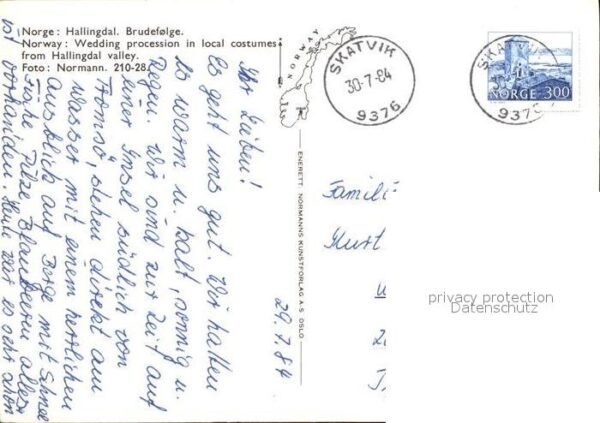 Norge: Hallingdal. Brudefølge.
Norway: Wedding procession in local costumes
from Hallingdal valley.
Foto: Normann. 210-28.
NORWAY
SKATVIK
30-7-84
9376
SKATVIK
937
NORGE 300
ENERETT: NORMANNS KUNSTFORLAG A.S OSLO
29.7.84
Ihr Lieben!
Es geht uns gut. Wir hatten
es warm u. kalt, sonnig u.
Regen. Wir sind zur Zeit auf
einer Insel südlich von
Tromsö, stehen direkt am
Wasser mit einem herrlichen
Ausblick auf Berge mit Schnee
Pilze Blaubeeren alles
ist vorhanden. Heute war es sehr schön
Famili
Kurt
u
privacy protection
Datenschutz